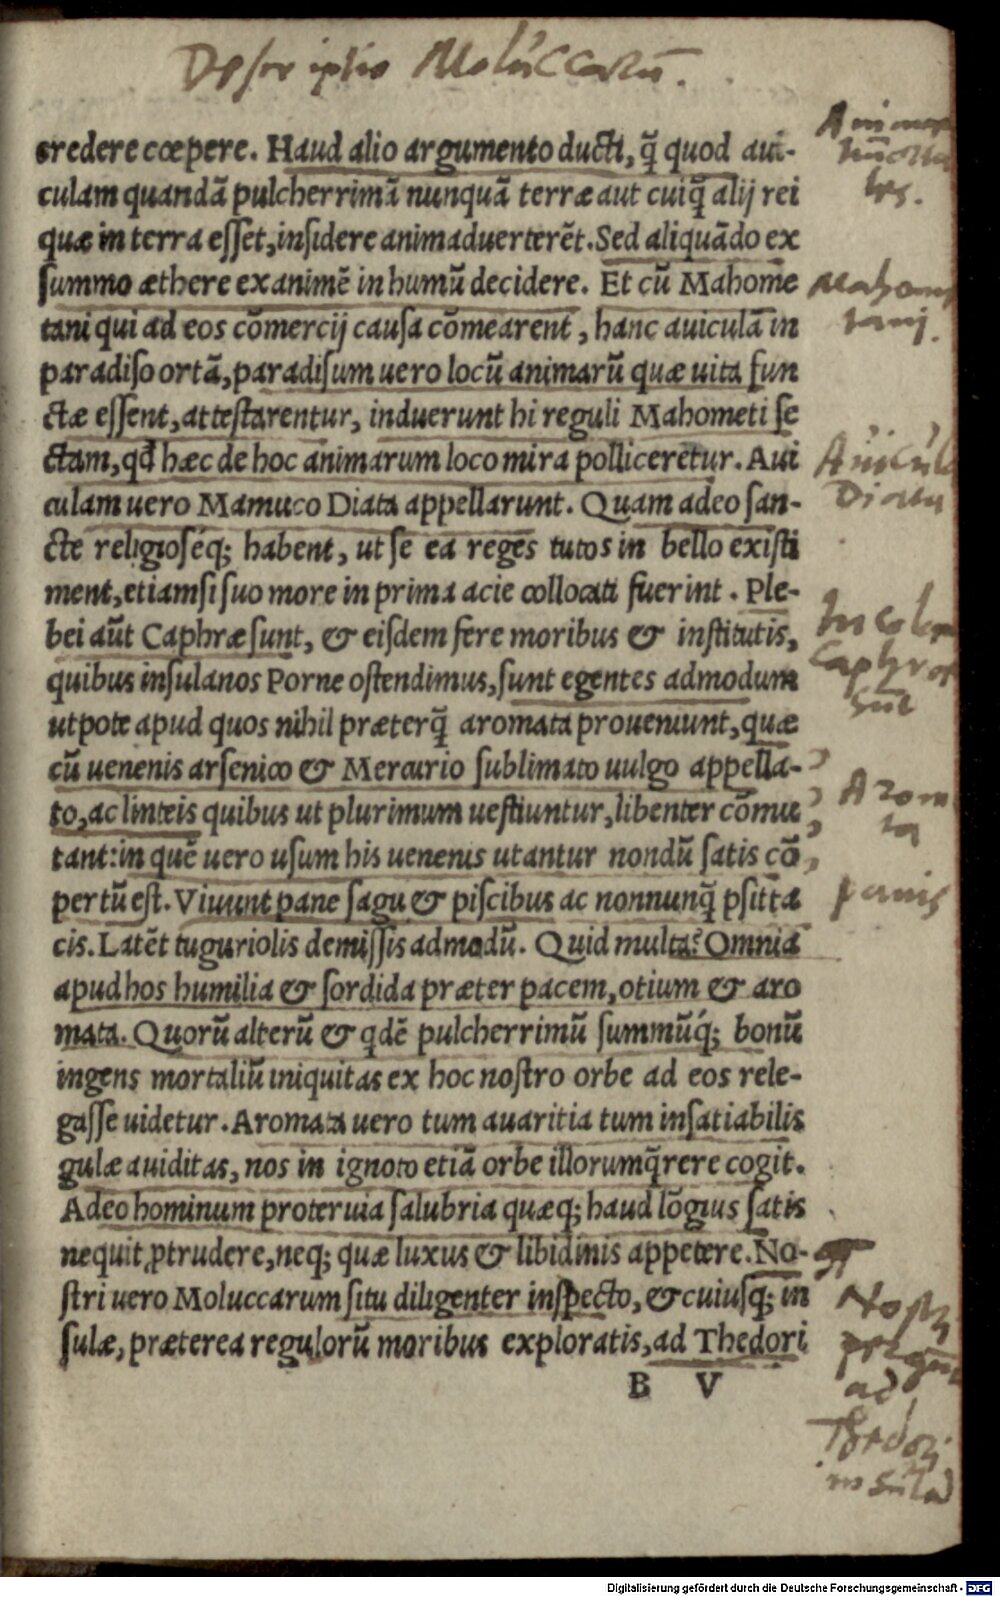 Descriptio Moluccarū.
credere cœpere. Haud alio argumento ducti, q̃ quod aui-
culam quandā pulcherrimā nunquā terræ aut cuiq̃ alij rei
quæ in terra eſſet, inſidere animaduerterēt. Sed aliquādo ex
ſummo æthere exanimē in humū decidere. Et cū Mahome
tani qui ad eos cōmercij cauſa cōmearent, hanc auiculā in
paradiſo ortā, paradiſum uero locū animarū quæ uita fun
ctæ eſſent, atteſtarentur, induerunt hi reguli Mahometi ſe
ctam, qđ hæc de hoc animarum loco mira polliceretur. Aui
culam uero Mamuco Diata appellarunt. Quam adeo ſan-
cte religioſéq; habent, ut ſe ea reges tutos in bello exiſti
ment, etiamſi ſuo more in prima acie collocati fuerint. Ple-
bei aūt Caphræ ſunt, & eiſdem fere moribus & inſtitutis,
quibus inſulanos Porne oſtendimus, ſunt egentes admodum
utpote apud quos nihil præterq̃ aromata proueniunt, quæ
cū uenenis arſenico & Mercurio ſublimato uulgo appella-
to, ac linteis quibus ut plurimum ueſtiuntur, libenter cōmu
tant: in quē uero uſum his uenenis utantur nondū ſatis cō
pertū eſt. Viuunt pane ſagu & piſcibus ac nonnunq̃ pſitta
cis. Latēt tuguriolis demiſſis admodū. Quid multa? Omnia
apud hos humilia & ſordida præter pacem, otium & aro
mata. Quorū alterū & qdē pulcherrimū ſummūq́; bonū
ingens mortaliū iniquitas ex hoc noſtro orbe ad eos rele-
gaſſe uidetur. Aromata uero tum auaritia tum inſatiabilis
gulæ auiditas, nos in ignoto etiā orbe illorum q̃rere cogit.
Adeo hominum proteruia ſalubria quæq; haud lōgius ſatis
nequit ꝓtrudere, neq; quæ luxus & libidinis appetere. No-
ſtri uero Moluccarum ſitu diligenter inſpecto, & cuiuſq; in
ſulæ, præterea regulorū moribus exploratis, ad Thedori
B V
Mahome
tani.
Auicula
Diata
Incole
Caphræ
sūt
Aroma
ta
panis
Nostri
ad
Thedori
insulā
Digitalisierung gefördert durch die Deutsche Forschungsgemeinschaft - DFG